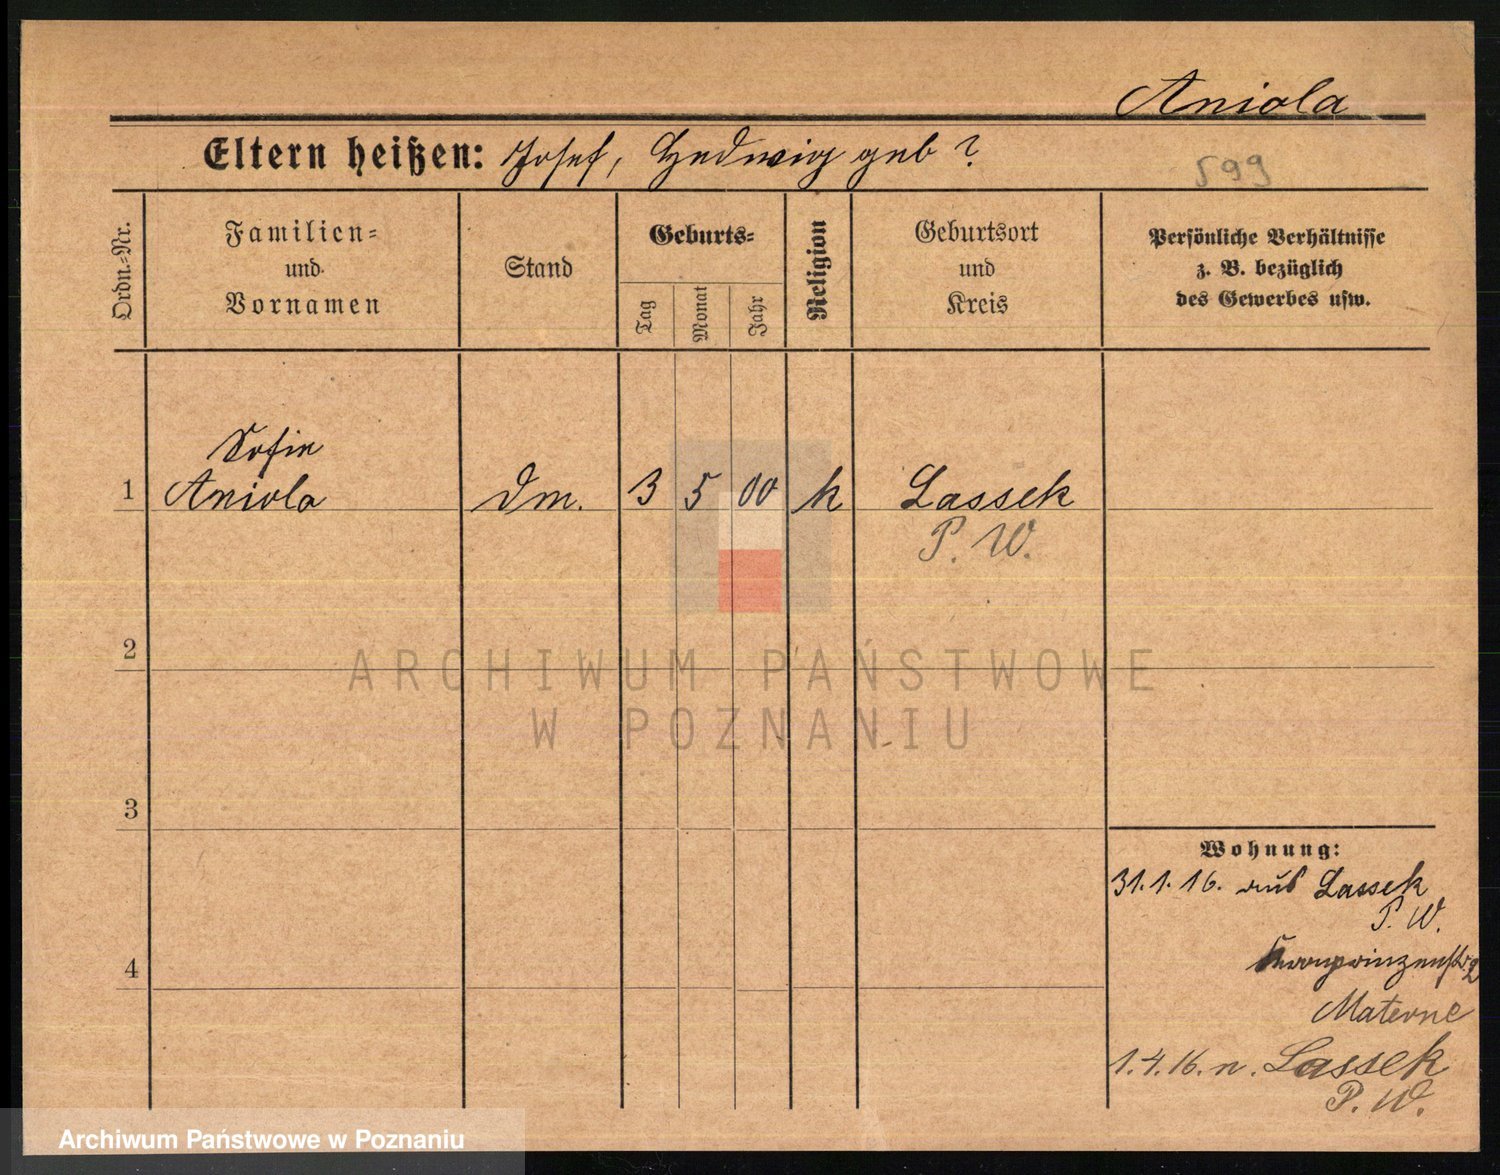 Aniola
Eltern heißen: Josef, Hedwig geb ?
599
Ordn.=Nr.
Familien=
und
Vornamen
Stand
Geburts=
Tag
Monat
Jahr
Religion
Geburtsort
und
Kreis
Persönliche Verhältnisse
z. B. bezüglich
des Gewerbes usw.
Sofie
1 Aniola Dm. 3 5 00 k Lassek
P. W.
2
ARCHIWUM PAŃSTWOWE
W POZNANIU
3
Wohnung:
31.1.16. aus Lassek
P. W.
4
Kronprinzenstr 2
Materne
1.4.16. n. Lassek
P. W.
Archiwum Państwowe w Poznaniu